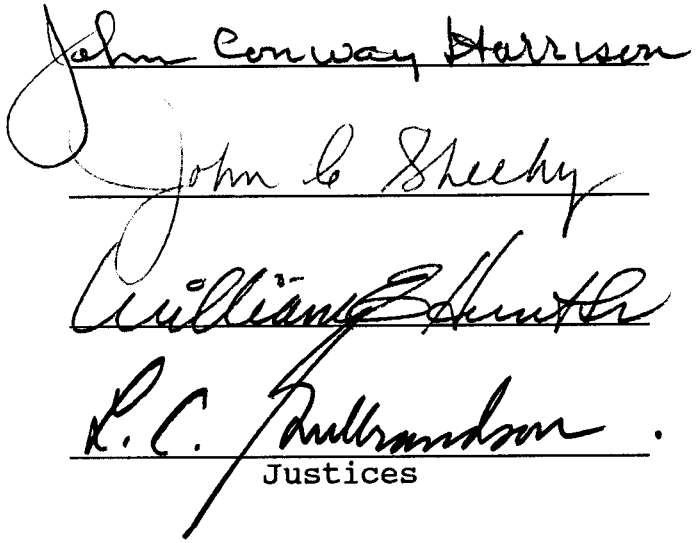 John Conway Harrison
John C Sheehy
William E Hunter
L. C. Gulbrandson.
Justices